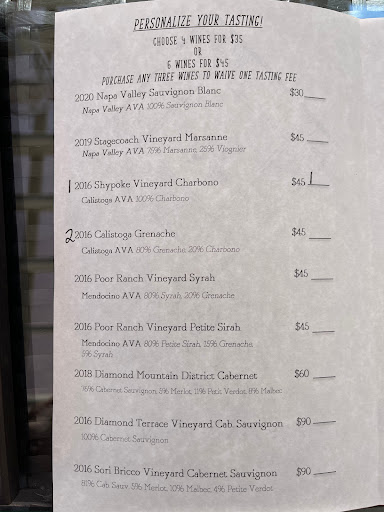 PERSONALIZE YOUR TASTING!
CHOOSE 4 WINES FOR $35
OR
6 WINES FOR $45
PURCHASE ANY THREE WINES TO WAIVE ONE TASTING FEE
2020 Napa Valley Sauvignon Blanc $30
Napa Valley AVA 100% Sauvignon Blanc
2019 Stagecoach Vineyard Marsanne $45
Napa Valley AVA 75% Marsanne, 25% Viognier
1 2016 Shypoke Vineyard Charbono $45 1
Calistoga AVA 100% Charbono
2 2016 Calistoga Grenache $45
Calistoga AVA 80% Grenache, 20% Charbono
2016 Poor Ranch Vineyard Syrah $45
Mendocino AVA 80% Syrah, 20% Grenache
2016 Poor Ranch Vineyard Petite Sirah $45
Mendocino AVA 80% Petite Sirah, 15% Grenache,
5% Syrah
2018 Diamond Mountain District Cabernet $60
76% Cabernet Sauvignon, 5% Merlot, 11% Petit Verdot, 8% Malbec
2016 Diamond Terrace Vineyard Cab. Sauvignon $90
100% Cabernet Sauvignon
2016 Sori Bricco Vineyard Cabernet Sauvignon $90
81% Cab Sauv, 5% Merlot, 10% Malbec, 4% Petite Verdot